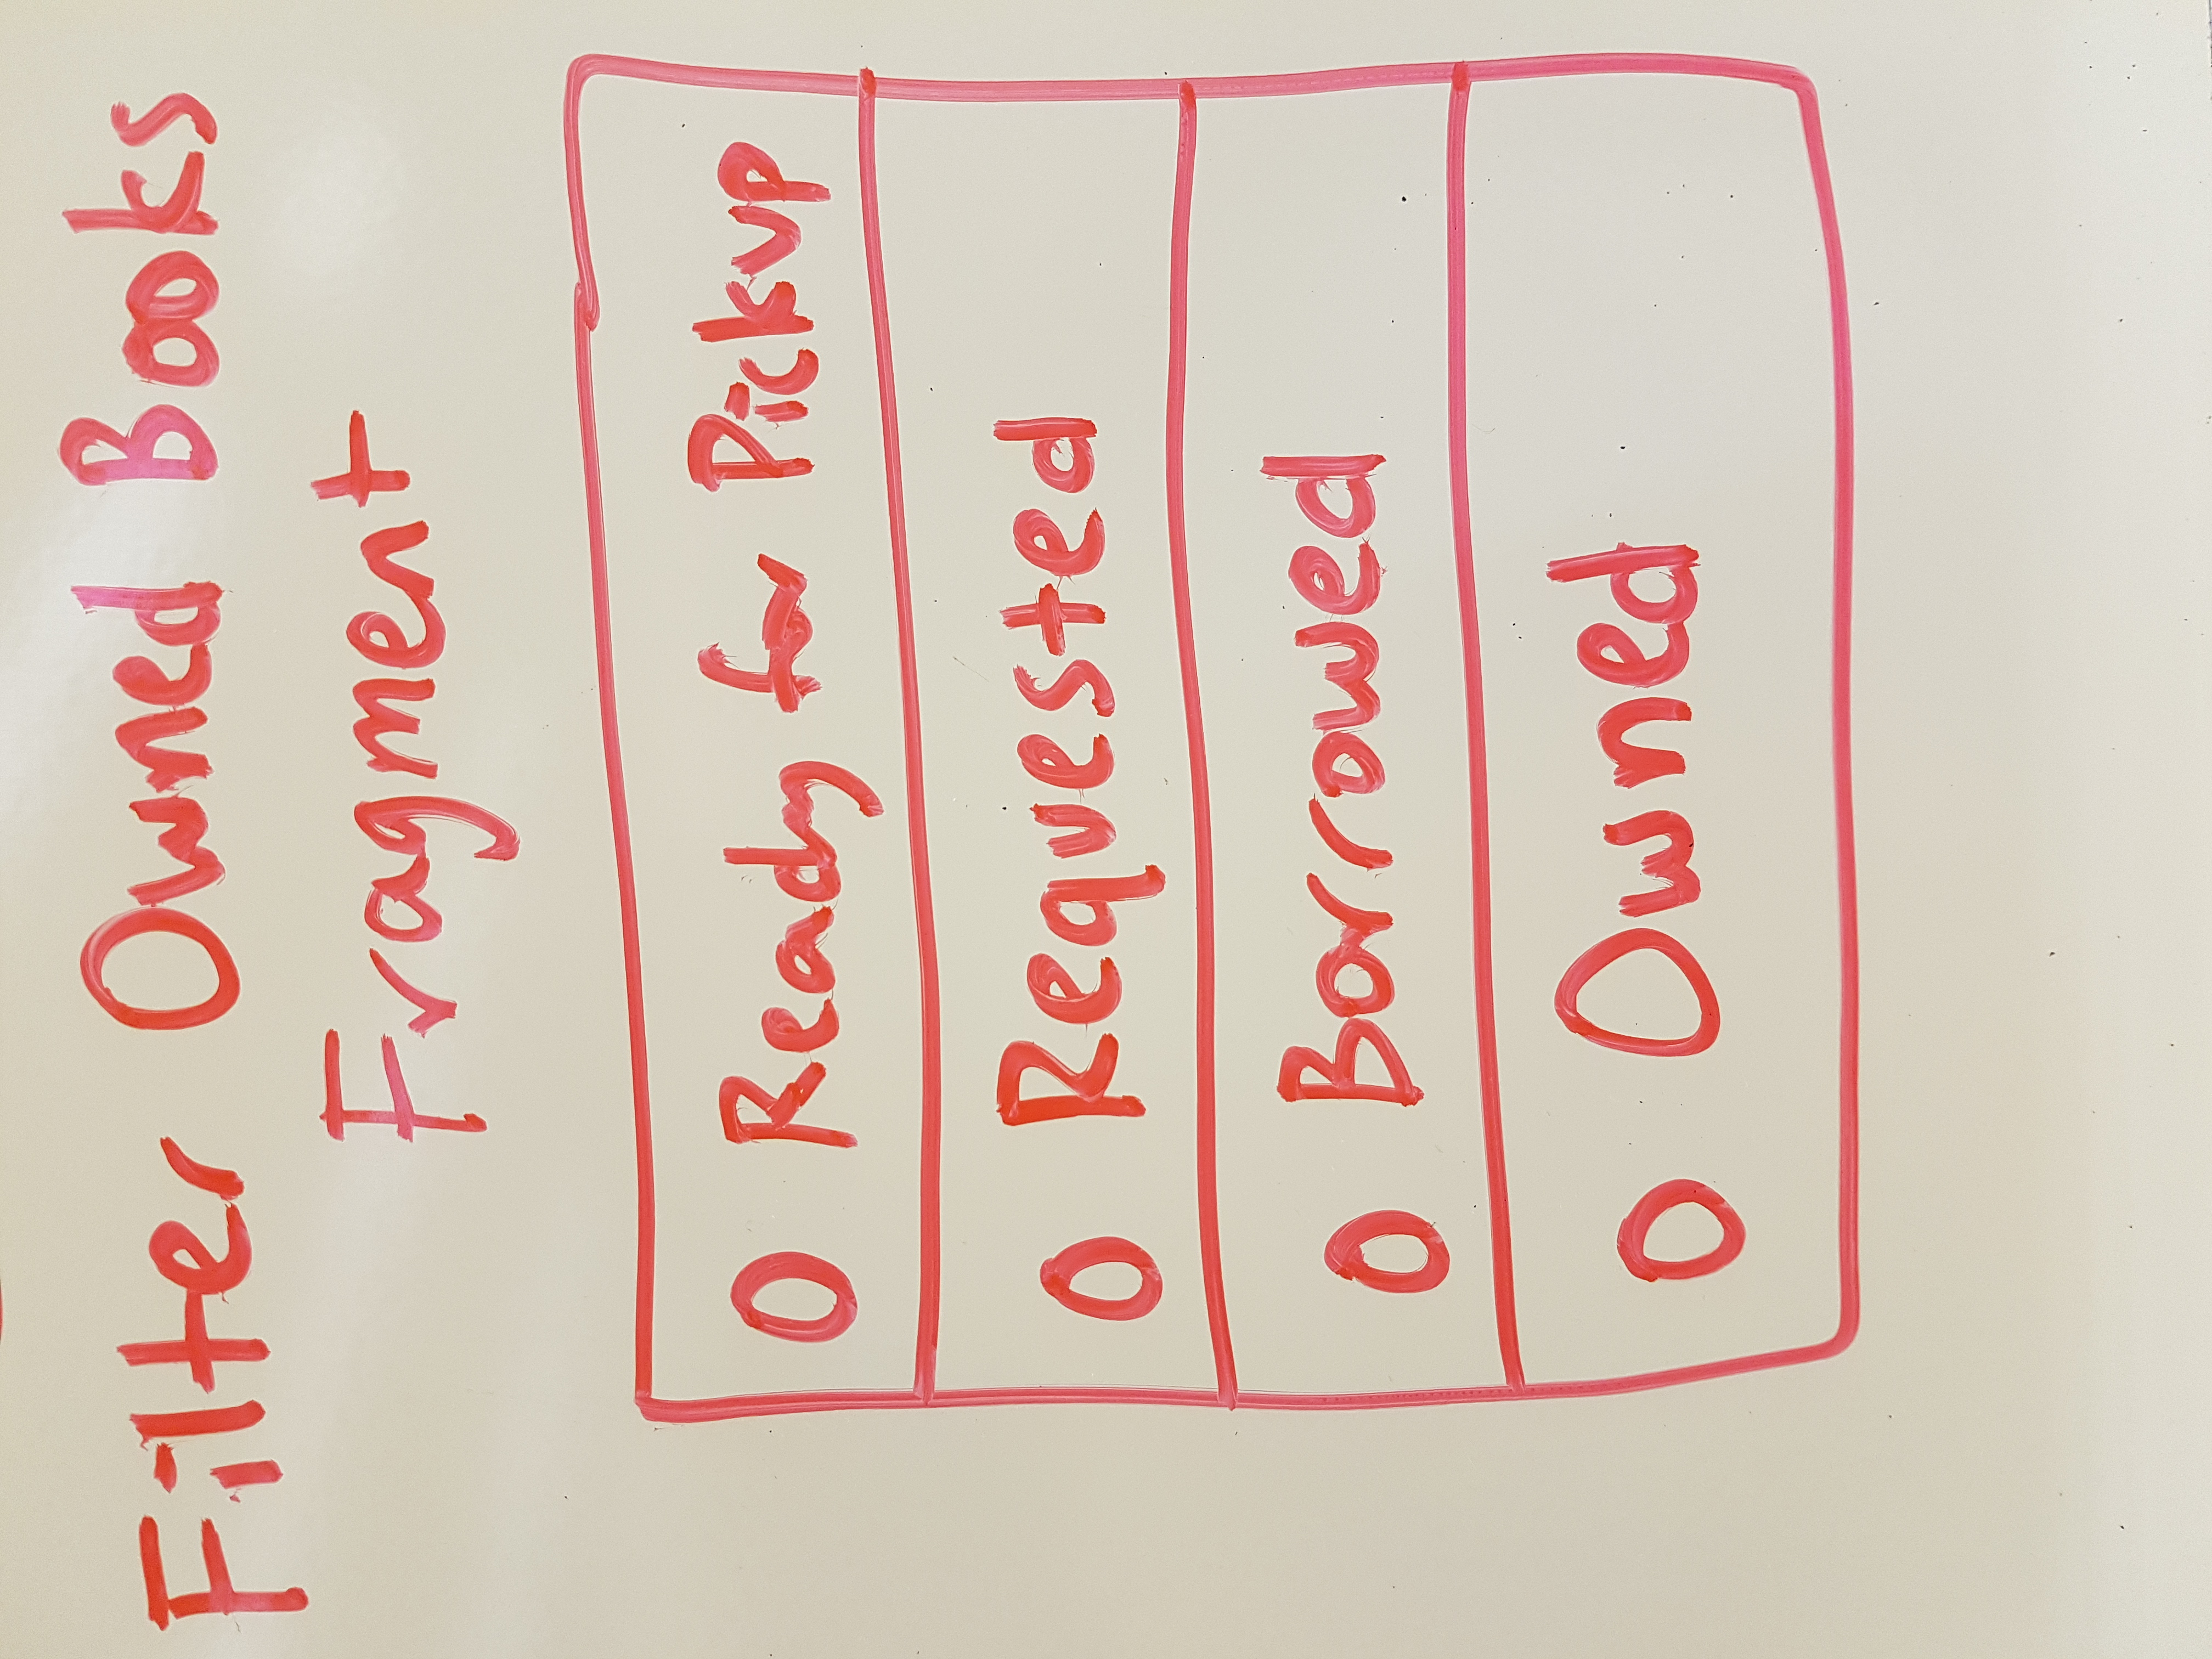 Filter Owned Books
Fragment
O Ready for Pickup
O Requested
O Borrowed
O Owned